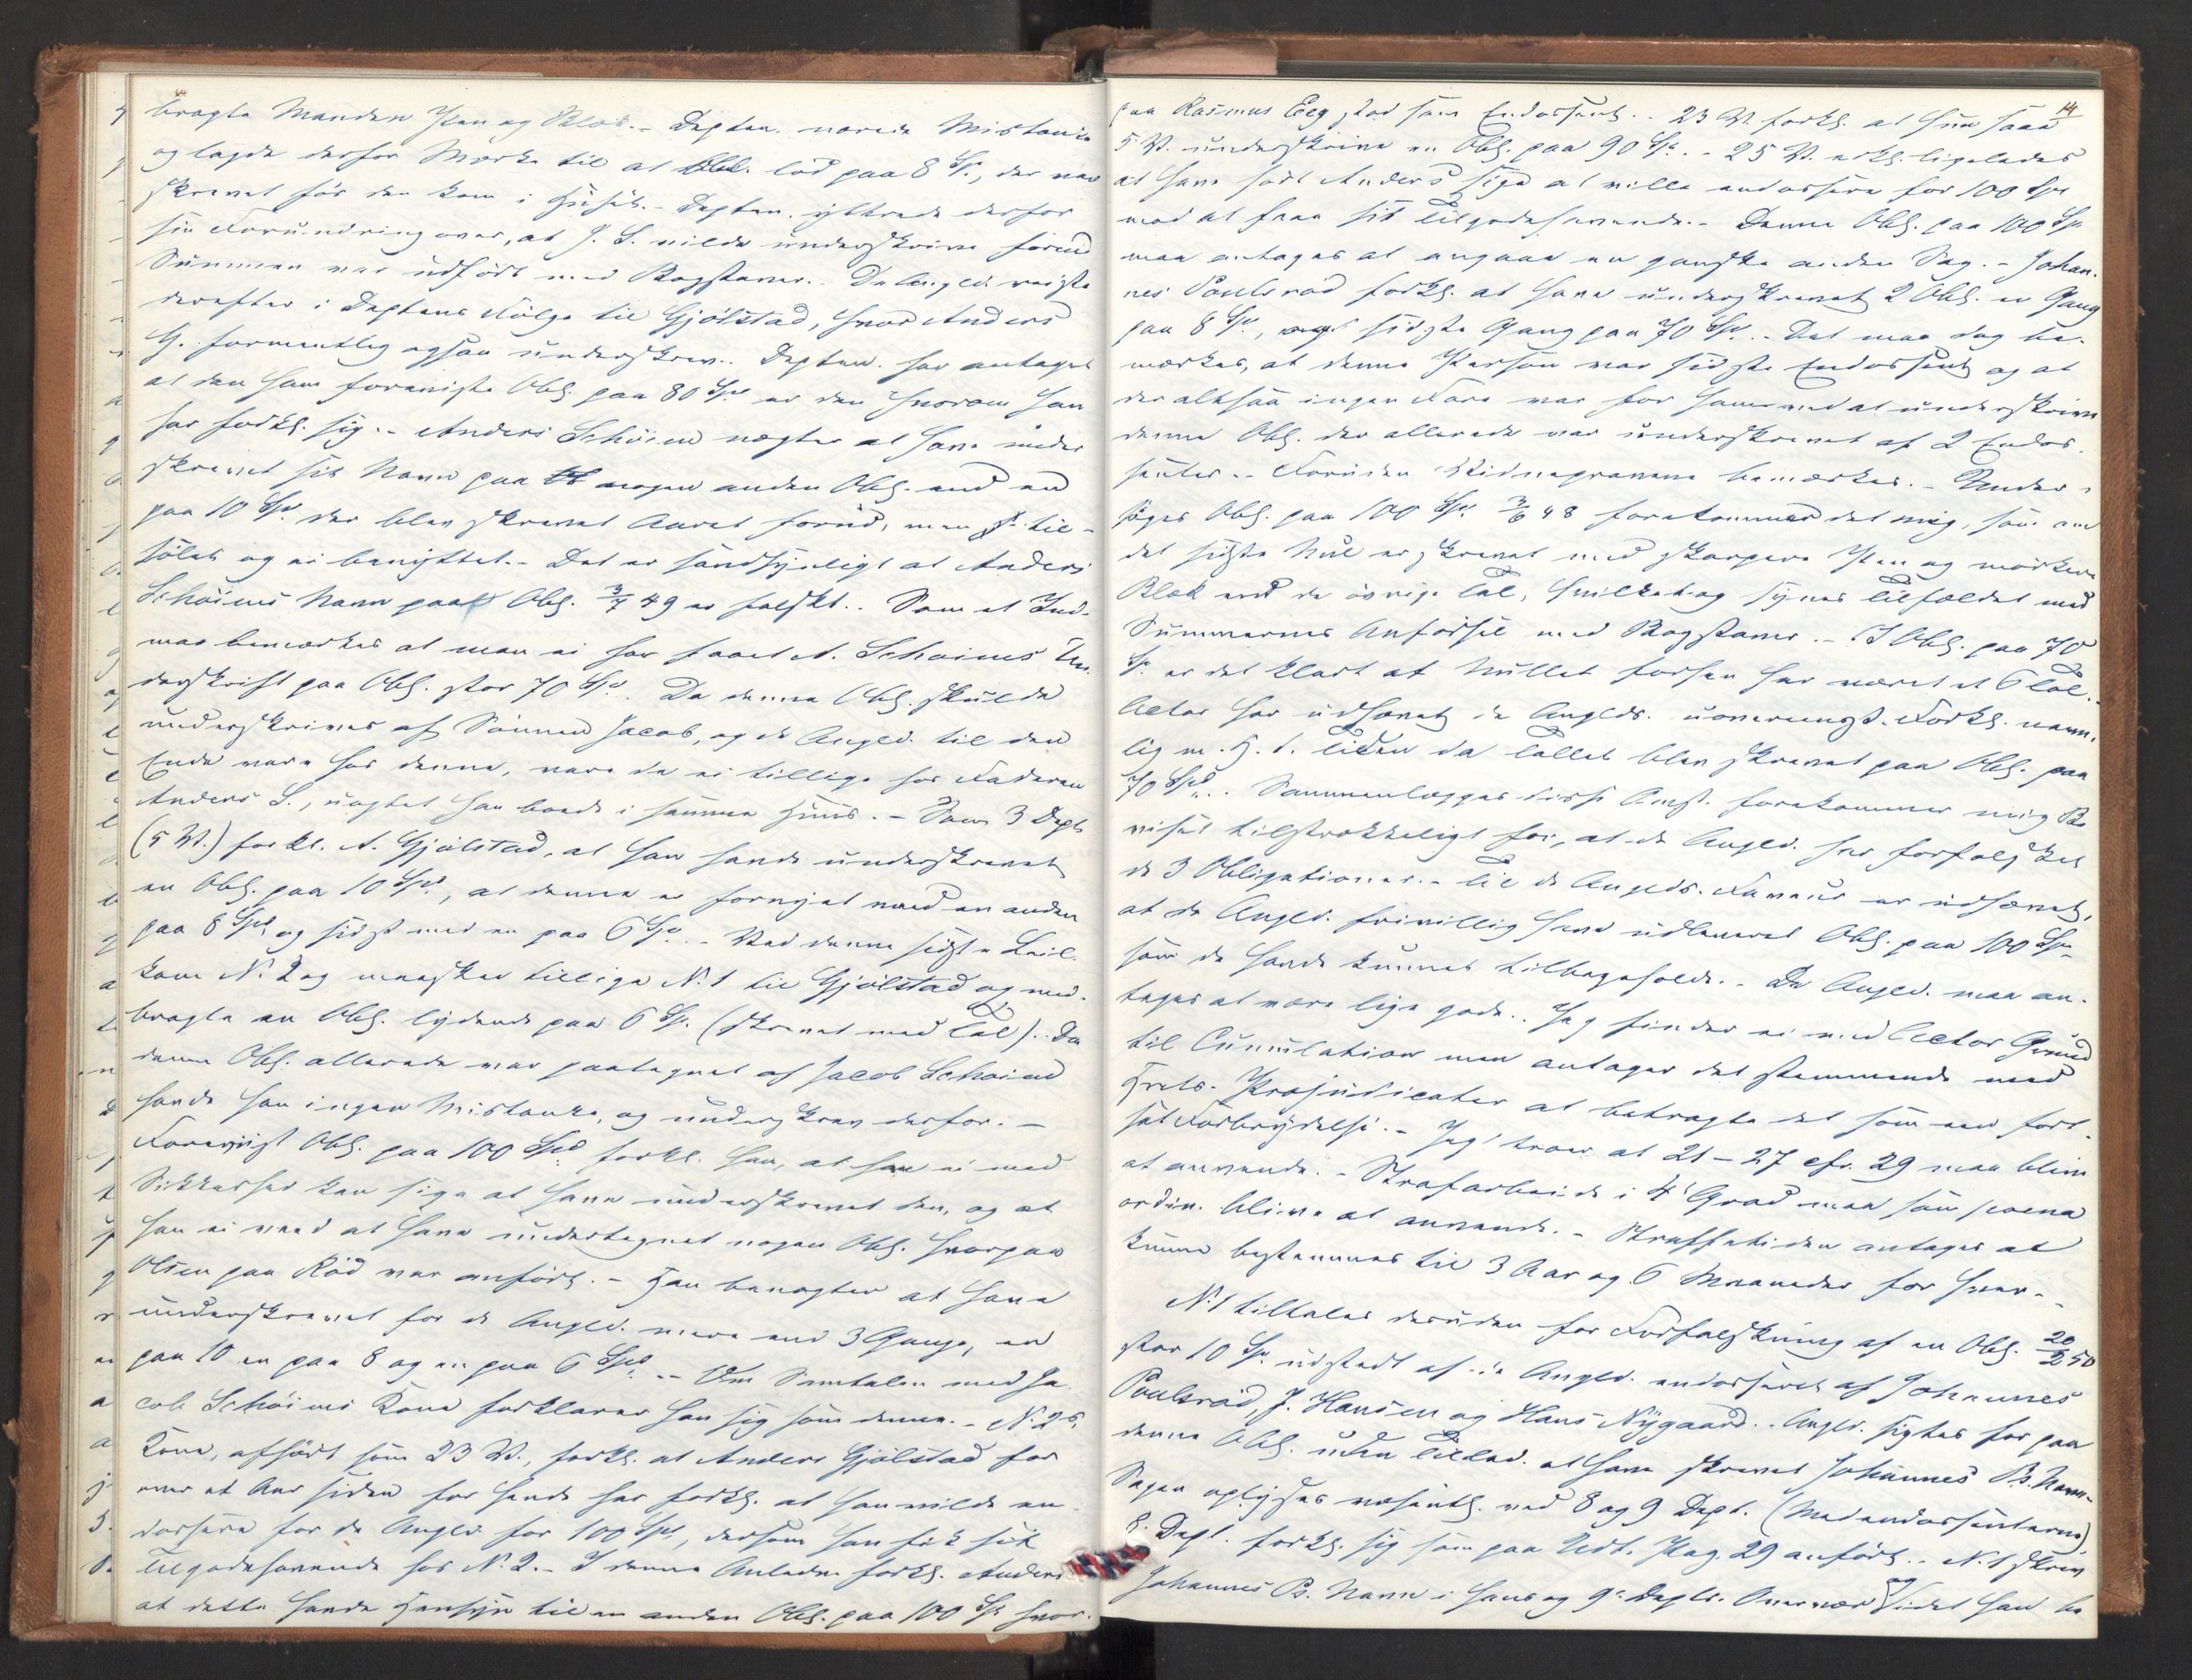 bragte Manden Pen og Blæk. - Depten. nærede Mistanke
og lagde derfor Mærke til at Obl. lød paa 8 Sp., der var
skrevet før den kom i Huset. - Depten. yttrede derfor
sin Forundring over, at J. S. vilde underskrive førend
Summen var udført med Bogstaver. - De Anglde. reiste
derefter i Deptens Følge til Gjølstad, hvor Anders
G. formentlig ogsaa underskrev. Depten. har antaget
at den ham foreviste Obl. paa 80 Spd. er den hvorom han
har forkl. sig. - Anders Schøien nægter at have under
skrevet sit Navn paa nogen anden Obl. end en
paa 10 Spd. der blev skrevet Aaret forud, men til-
sølet og ei benyttet. - Det er sandsynligt at Anders
Schøiens Navn paa Obl. 3/7 49 er falskt. - Som et Ind.
maa bemærkes at man ei har faaet A. Schøiens Un-
derskrift paa Obl. stor 70 Spd. Da denne Obl. skulde
underskrives af Sønnen Jacob, og de Angld. til den
Ende vare hos denne, vare de ei tillige hos Faderen
Anders S., uagtet han boede i samme Huus. - Som 3 Dept.
(5 V.) forkl. A. Gjølstad, at han havde underskrevet
en Obl. paa 10 Spd., at denne er fornyet med en anden
paa 8 Spd. og sidst med en paa 6 Sp. - Ved denne sidste Leil.
kom N. 2 og maaskee tillige N. 1 til Gjølstad og med-
bragte en Obl. lydende paa 6 Sp. (skrevet med Tal). - Da
denne Obl. allerede var paategnet af Jacob Schøien
havde han ingen Mistanke, og underskrev derfor. -
Forevist Obl. paa 100 Spd. forkl. han, at han ei med
Sikkerhed kan sige at have underskrevet den, og at
han ei veed at have undertegnet nogen Obl. hvorpaa
Olsen paa Rød var anført. - Han benægter at have
underskrevet for de Angld. mere end 3 Gange, en
paa 10 en paa 8 og en paa 6 Spd. - Om Samtalen med Ja-
cob Schøiens Kone forklarer han sig som denne. - N. 2s
Kone, afhørt som 23 V., forkl. at Anders Gjølstad for
over et Aar siden for hende har forkl. at han vilde en-
dossere for de Angld. for 100 Spd., dersom han fik sit
Tilgodehavende hos N. 2. - I denne Anledn. forkl. Anders
at dette havde Hensyn til en anden Obl. paa 100 Sp. hvor-
14
paa Rasmus Eeg stod som Endossent. - 23 V. forkl. at hun saae
5 V. underskrive en Obl. paa 90 Sp. - 25 V. forkl. ligeledes
at have hørt Anders sige at ville endossere for 100 Spd
mod at faae sit Tilgodehavende. - Denne Obl. paa 100 Sp.
maa antages at angaae en ganske anden Sag. - Johan-
nes Poulsrød forkl. at have underskrevet 2 Obl. en Gang
paa 8 Sp., sidste Gang paa 70 Spd. - Det maa dog be-
mærkes, at denne Person var sidste Endossent og at
der altsaa ingen Fare var for ham ved at underskrive
denne Obl. der allerede var underskrevet af 2 Endos-
senter. - Foruden Vidneprovene bemærkes. - Under-
søges Obl. paa 100 Spd. 3/6 48 forekommer det mig, som om
det sidste Nul er skrevet med skarpere Pen og mørkere
Blæk end de øvrige Tal, hvilket og synes Tilfældet med
Summernes Anførsel med Bogstaver. - I Obl. paa 70
Sp. er det klart at Nullet forhen har været et 6 Tal. -
Actor har udhævet de Anglds. uoverensst. Forkl. navn-
lig m. H. t. Tiden da Tallet blev skrevet paa Obl. paa
70 Spd. - Sammenlægges disse Omst. forekommer mig Be-
viset tilstrækkeligt for, at de Angld. har forfalsket
de 3 Obligationer. - Til de Anglds. Faveur er udhævet,
at de Angld. frivillig have udleveret Obl. paa 100 Spd.
som de havde kunnet tilbageholde. - De Angld. maa an-
tages at være lige gode. - Jeg finder ei med Actor Grund
til Cumulation men antager det stemmende med
Hrets. Præjudicater at betragte det som en fort-
sat Forbrydelse. - Jeg troer at 21-27 cfr. 29 maa blive
at anvende. - Strafarbeide i 4 Grad maa som poena
ordin. blive at anvende. - Straffetiden antages at
kunne bestemmes til 3 Aar og 6 Maaneder for hver. -
N. 1 tiltales desuden for Forfalskning af en Obl. 20/2 50
stor 10 Sp. udstedt af de Angld. endosseret af Johannes
Poulsrød, J. Hansen og Hans Nygaard. - Angld. sigtes for paa
denne Obl. uden Tillad. at have skrevet Johannes Ps. Navn. -
Sagen oplyses væsentl. ved 8 og 9 Dept. (Medendossenterne)
8. Dept. forkl. sig som paa Udt. Pag. 29 anført. - N. 1 skrev
Johannes Ps. Navn i hans og 9 Depts. Nærvær og idet han be